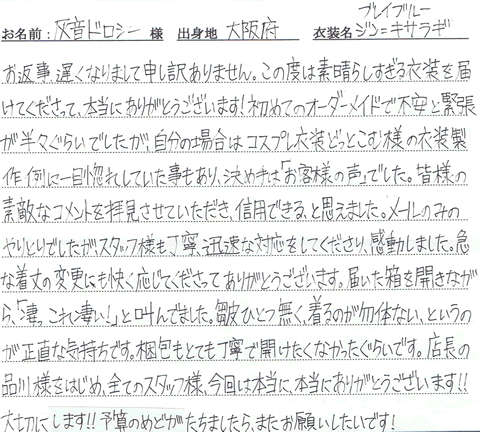 お名前：灰音ドロシー 様 出身地 大阪府 衣装名 ブレイブルー ジン=キサラギ
お返事遅くなりまして申し訳ありません。この度は素晴らしすぎる衣装を届
けてくださって、本当にありがとうございます!初めてのオーダーメイドで不安と緊張
が半々ぐらいでしたが、自分の場合はコスプレ衣装どっとこむ様の衣装製
作例に一目惚れしていた事もあり、決め手は「お客様の声」でした。皆様の
素敵なコメントを拝見させていただき、信用できる、と思えました。メールのみの
やりとりでしたが、スタッフ様も丁寧、迅速な対応をしてくださり、感動しました。急
な着丈の変更にも快く応じてくださってありがとうございます。届いた箱を開きなが
ら、「凄、これ凄い!」と叫んでました。皺ひとつ無く、着るのが勿体ない、というの
が正直な気持ちです。梱包もとても丁寧で開けたくなかったぐらいです。店長の
品川様をはじめ、全てのスタッフ様、今回は本当に、本当にありがとうございます!!
大切にします!!予算のめどがたちましたら、またお願いしたいです!